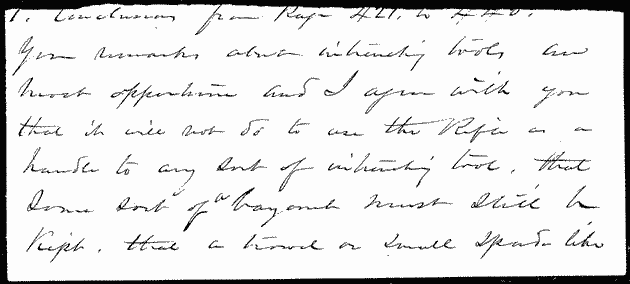 1. Conclusions from Page 421. to 440.
Your remarks about intrenching tools are
most opportune and I agree with you
that it will not do to use the Rifle as a
handle to any sort of intrenching tool. that
some sort of a bayonet must still be
kept. that a trowel or small spade like